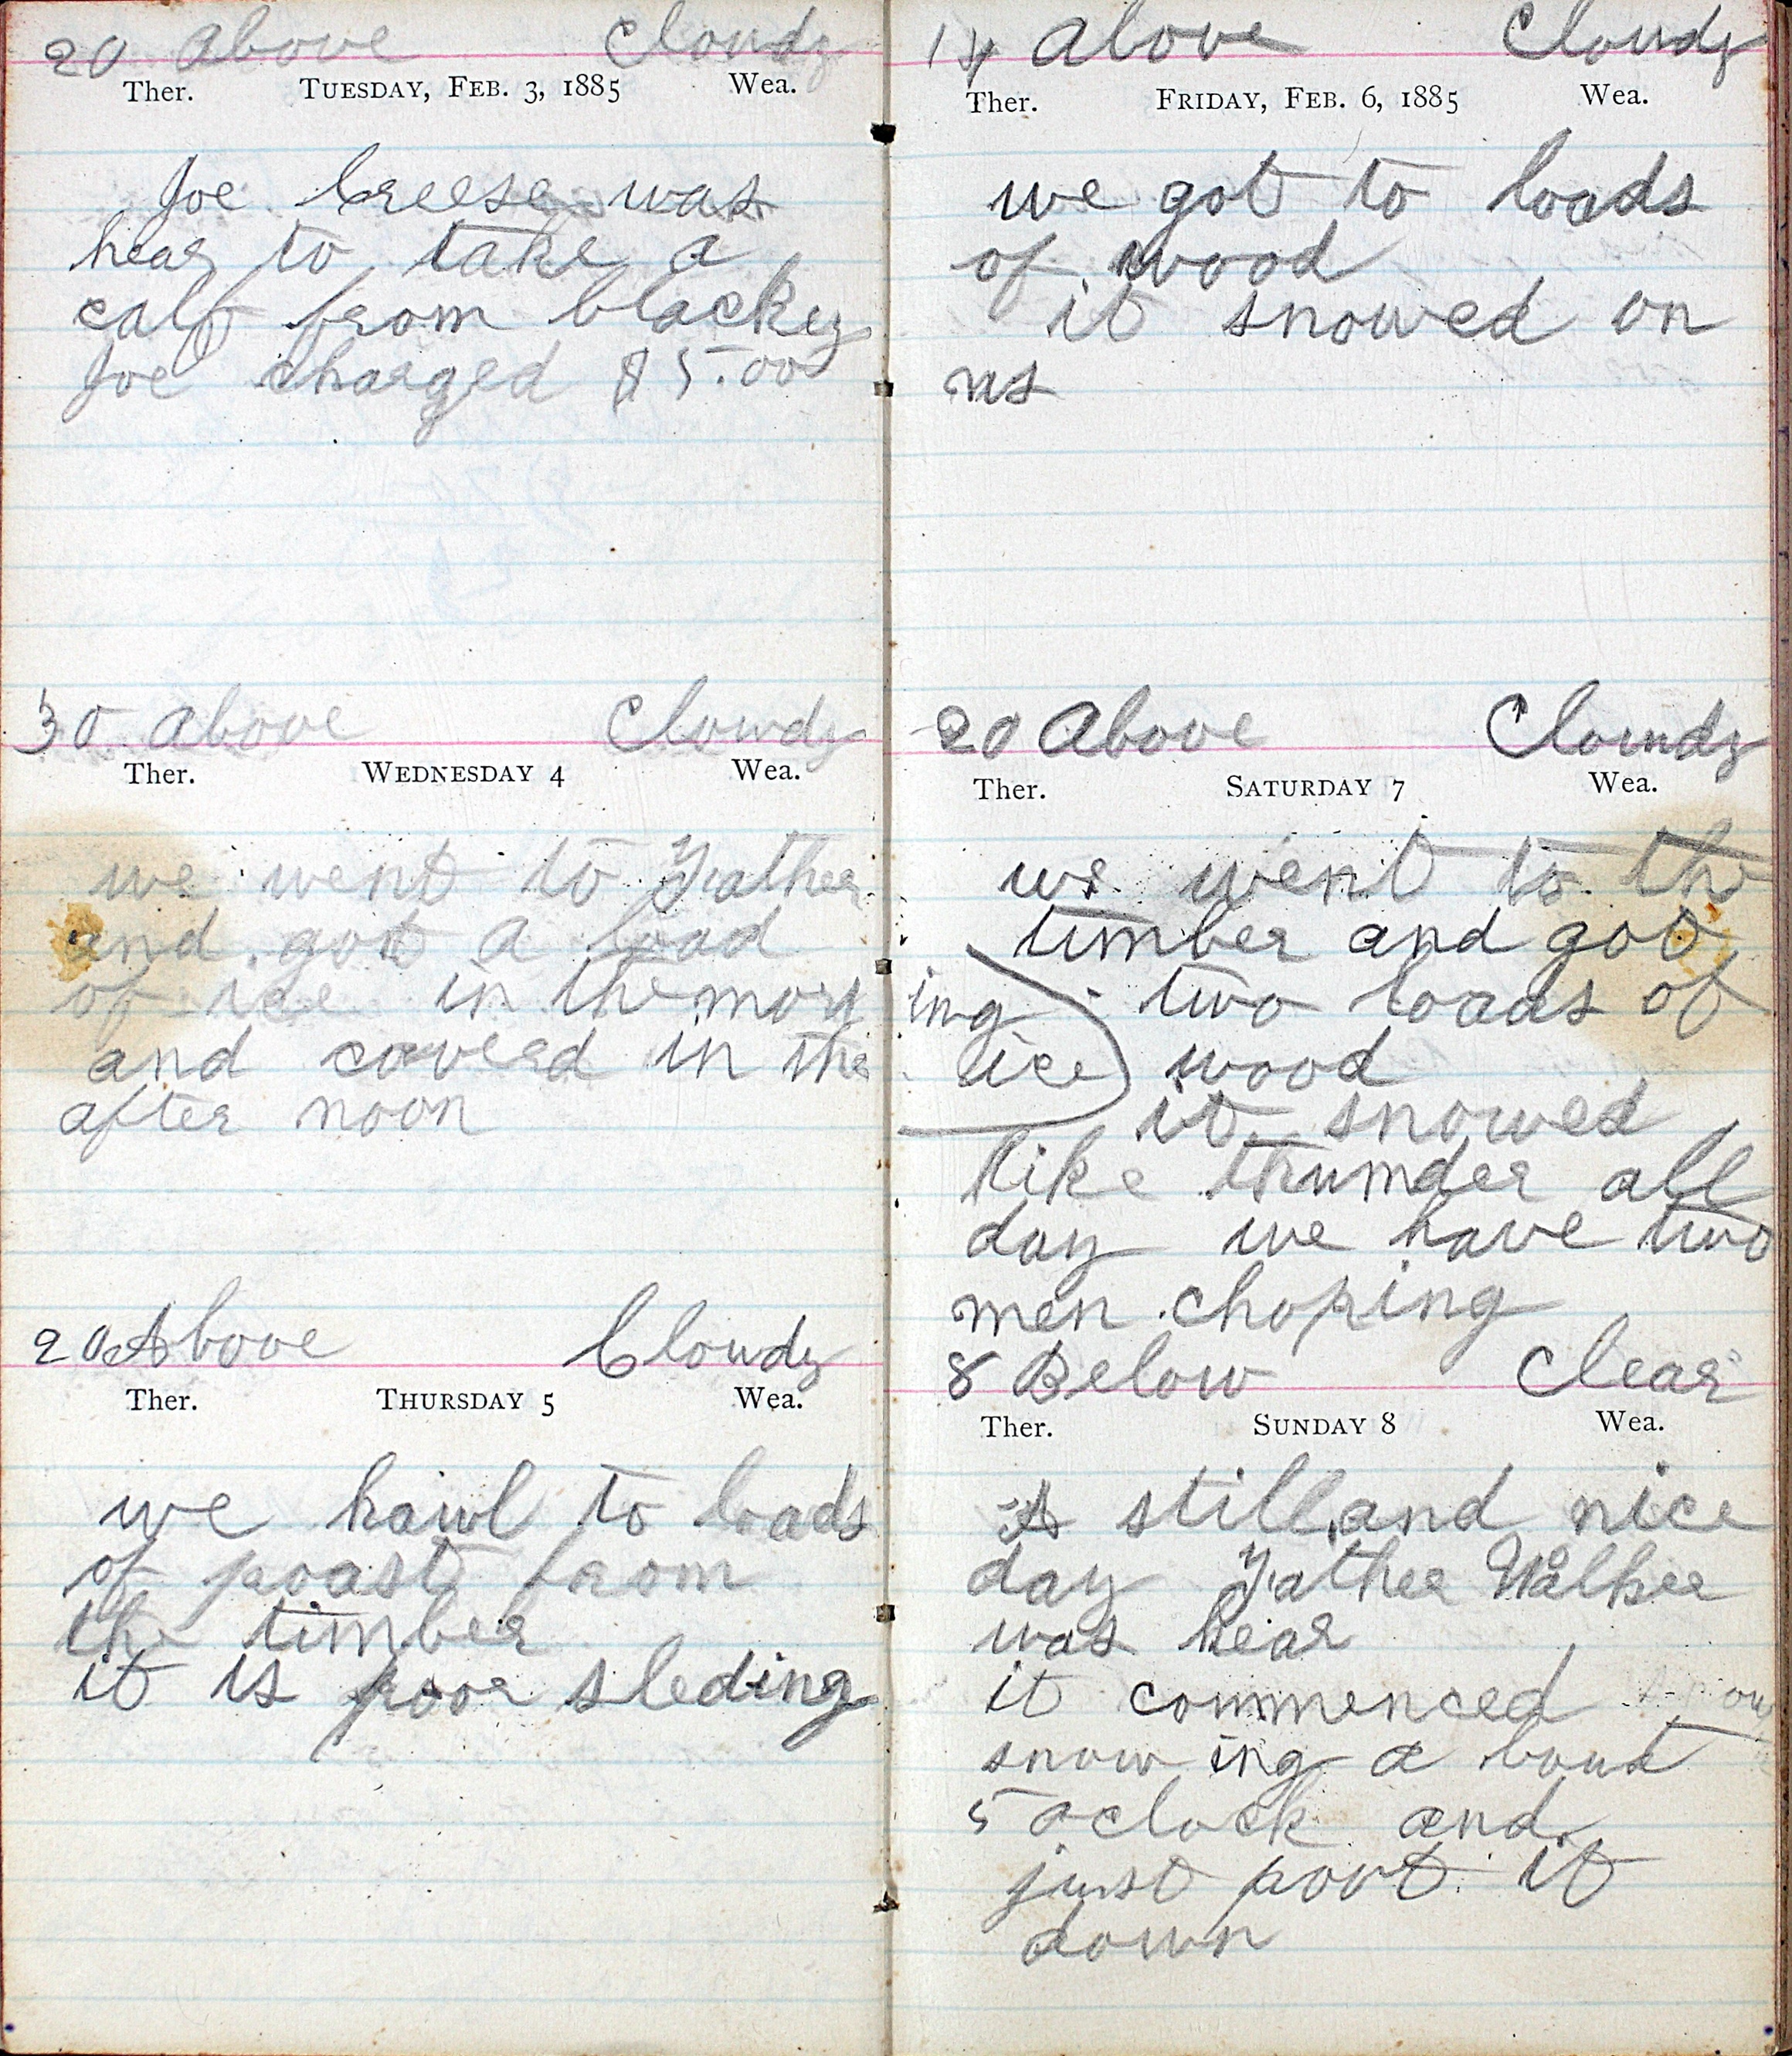 20 above Cloudy
Ther. TUESDAY, FEB. 3, 1885 Wea.
Joe Creese was
hear to take a
calf from blackey
Joe charged $5.00
30 above Clowdy
Ther. WEDNESDAY 4 Wea.
we went to Father
and got a load
of ice in the morn
and coverd in the
after noon
20 Above Clowdy
Ther. THURSDAY 5 Wea.
we hawl to loads
of poast from
the timber
it is poor sleding
14 above Cloudy
Ther. FRIDAY, FEB. 6, 1885 Wea.
we got to loads
of wood
it snowed on
us
20 above Cloundy
Ther. SATURDAY 7 Wea.
we went to the
timber and got
ing two loads of
ice wood
it snowed
like thunder all
day we have two
men choping
8 Below Clear
Ther. SUNDAY 8 Wea.
A still and nice
day Father Walker
was hear
it commenced
snowing a bout
5 oclock and
just poot it
down